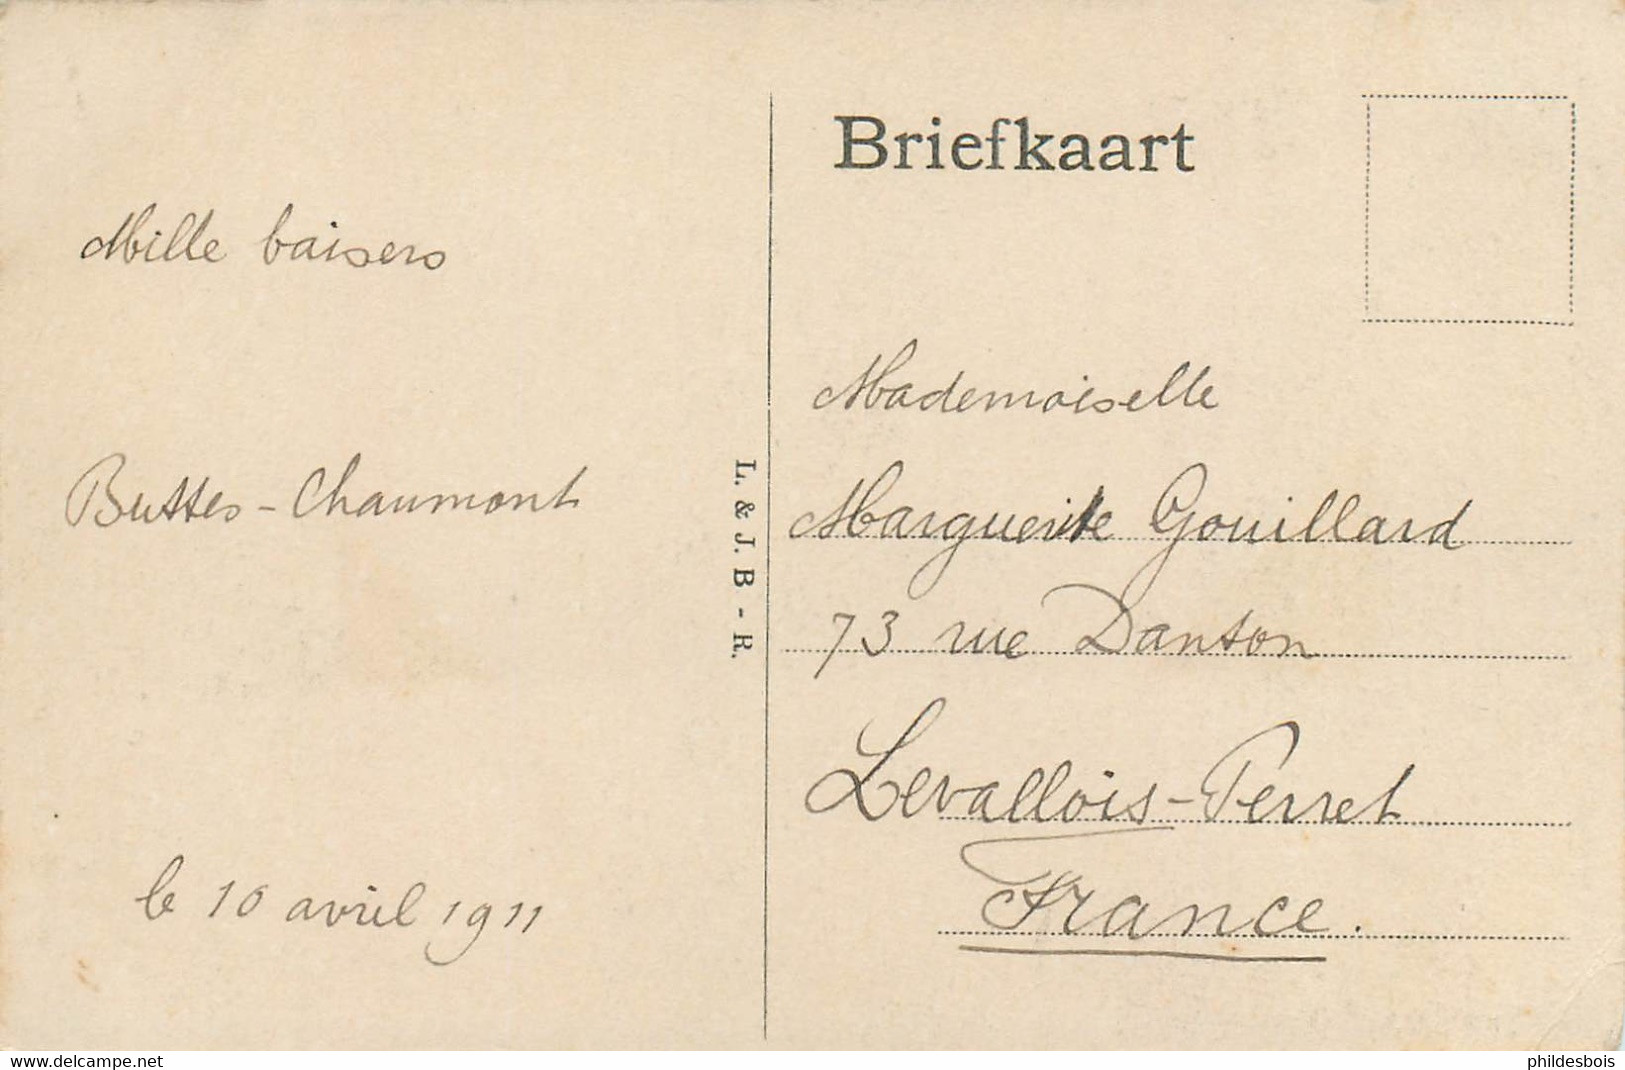 Mille baisers
Buttes-Chaumont
le 10 avril 1911
L. & J. B - R.
Briefkaart
Mademoiselle
Marguerite Gouillard
73 rue Danton
Levallois-Perret
France.
www.delcampe.net
phildesbois